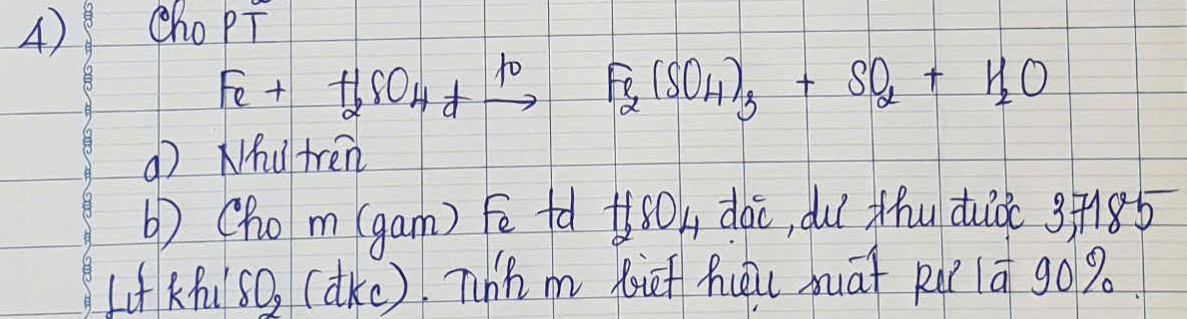 4) Cho PT
Fe + H₂SO₄ đ →(t°) Fe₂(SO₄)₃ + SO₂ + H₂O
a) Như trên
b) Cho m (gam) Fe td H₂SO₄ đặc, dư thu được 3,7185
lít khí SO₂ (đkc). Tính m biết hiệu suất pư là 90%.